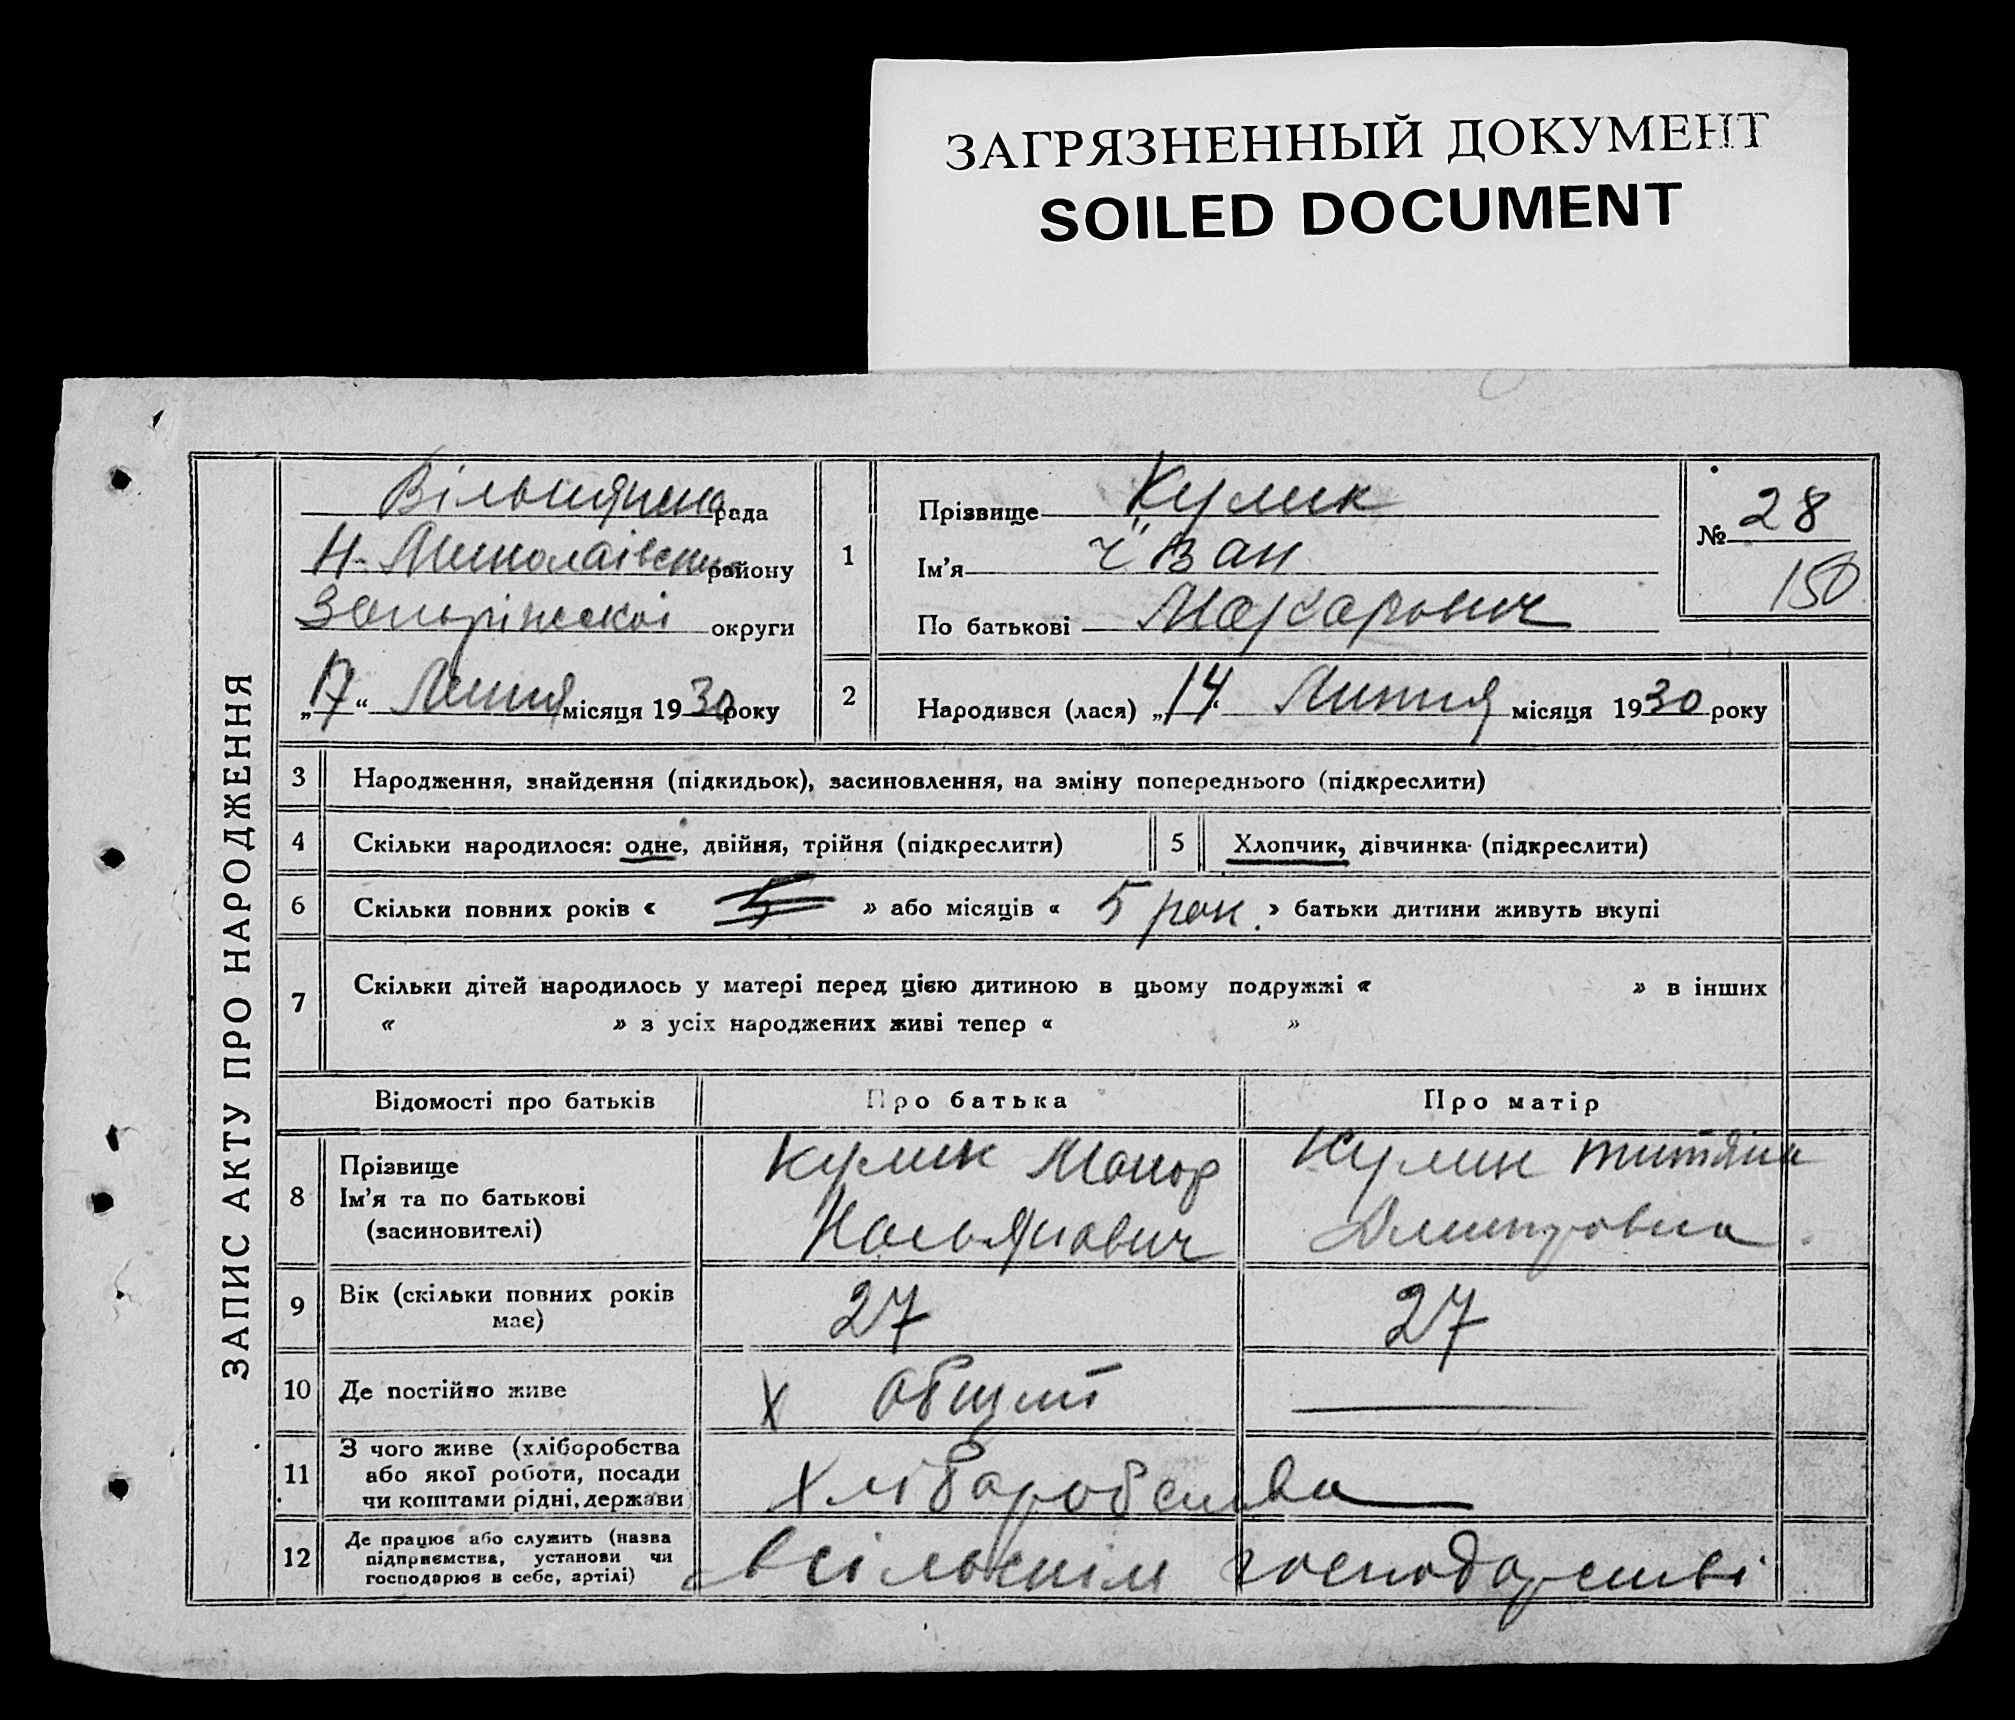 ЗАГРЯЗНЕННЫЙ ДОКУМЕНТ
SOILED DOCUMENT
ЗАПИС АКТУ ПРО НАРОДЖЕННЯ
рада
Н. Миколаівськ району
Запоріжскоі округи
„17“ Липня місяця 1930 року
1
Прізвище Кулик
Ім'я Іван
По батькові Макарович
№ 28
150
2
Народився (лася) „14“ Липня місяця 1930 року
3 Народження, знайдення (підкидьок), засиновлення, на зміну попереднього (підкреслити)
4 Скільки народилося: одне, двійня, трійня (підкреслити)
5 Хлопчик, дівчинка (підкреслити)
6 Скільки повних років « 5 » або місяців « 5 рок. » батьки дитини живуть вкупі
7 Скільки дітей народилось у матері перед цією дитиною в цьому подружжі « » в інших
« » з усіх народжених живі тепер « »
Відомості про батьків Про батька Про матір
8
Прізвище
Ім'я та по батькові
(засиновителі)
Кулик Макар
Кулик Титяна
Дмитровна
9
Вік (скільки повних років
має)
27 27
10 Де постійно живе
х
11
З чого живе (хліборобства
або якої роботи, посади
чи коштами рідні, держави
Хліборобства
12
Де працює або служить (назва
підприємства, установи чи
господарює в себе, артілі)
господарстві